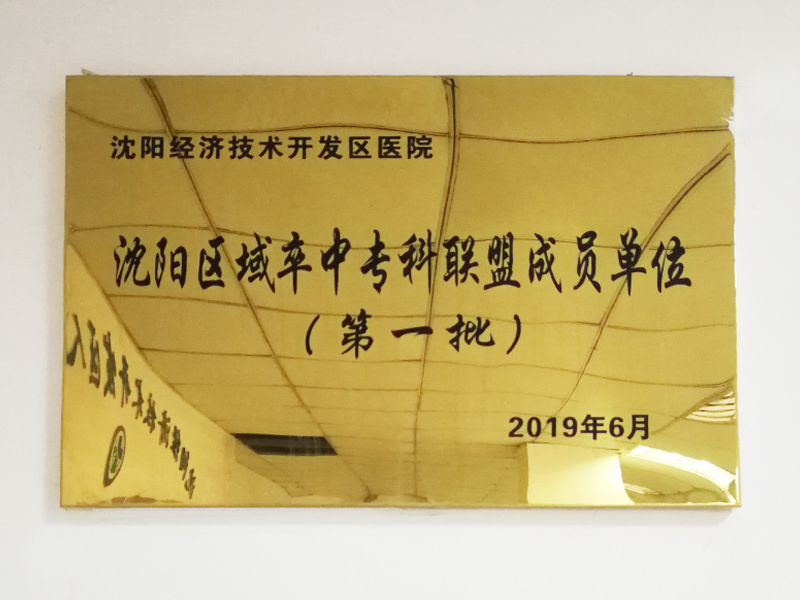 沈阳经济技术开发区医院
沈阳区域卒中专科联盟成员单位
（第一批）
2019年6月